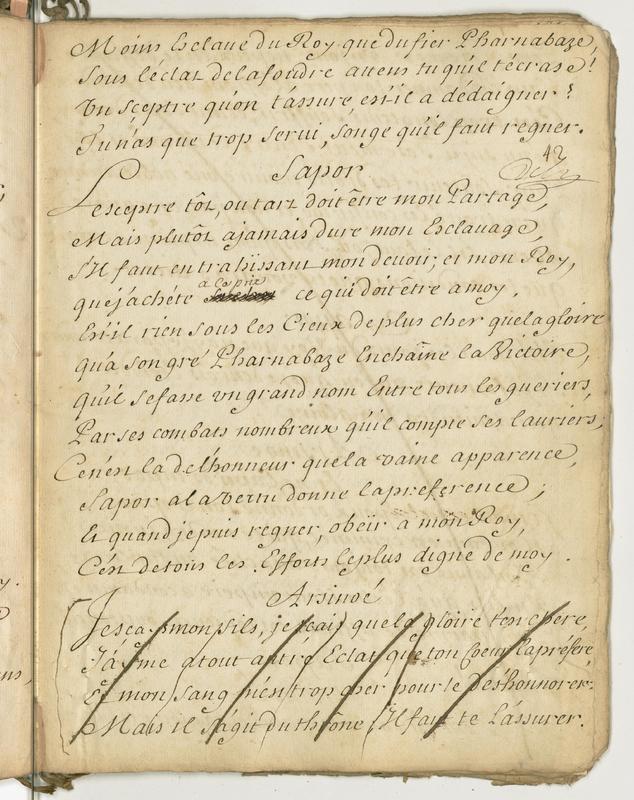 Moins Esclave du Roy que du fier Pharnabaze,
Sous l'éclat de la foudre attens tu qu'il t'écrase!
Un sceptre qu'on t'assure, est-il a dédaigner?
Tu n'as que trop servi, songe qu'il faut regner.
Sapor
42
Le sceptre tôt, ou tart doit être mon Partage,
Mais plutôt a jamais dure mon Esclavage,
S'Il faut en trahissant mon devoir, et mon Roy,
que j'achéte a ce prix ce qui doit être a moy.
Est-il rien sous les Cieux de plus cher que la gloire
qu'a son gré Pharnabaze Enchaîne la Victoire,
qu'il se fasse un grand nom Entre tous les gueriers,
Par ses combats nombreux qu'il compte ses lauriers;
Ce n'est la de l'honneur que la vaine apparence,
Sapor a la vertu donne la preference;
Et quand je puis regner, obëir a mon Roy,
C'est de tous les Efforts le plus digne de moy.
Arsinoé
Je sca mon fils, je scai que la gloire t'en chere,
J'ayme a tout autre Eclat que ton Coeur la préfére,
Et mon sang n'est trop cher pour le deshonnorer.
Mais il s'agit du thrône, Il faut te l'assurer.